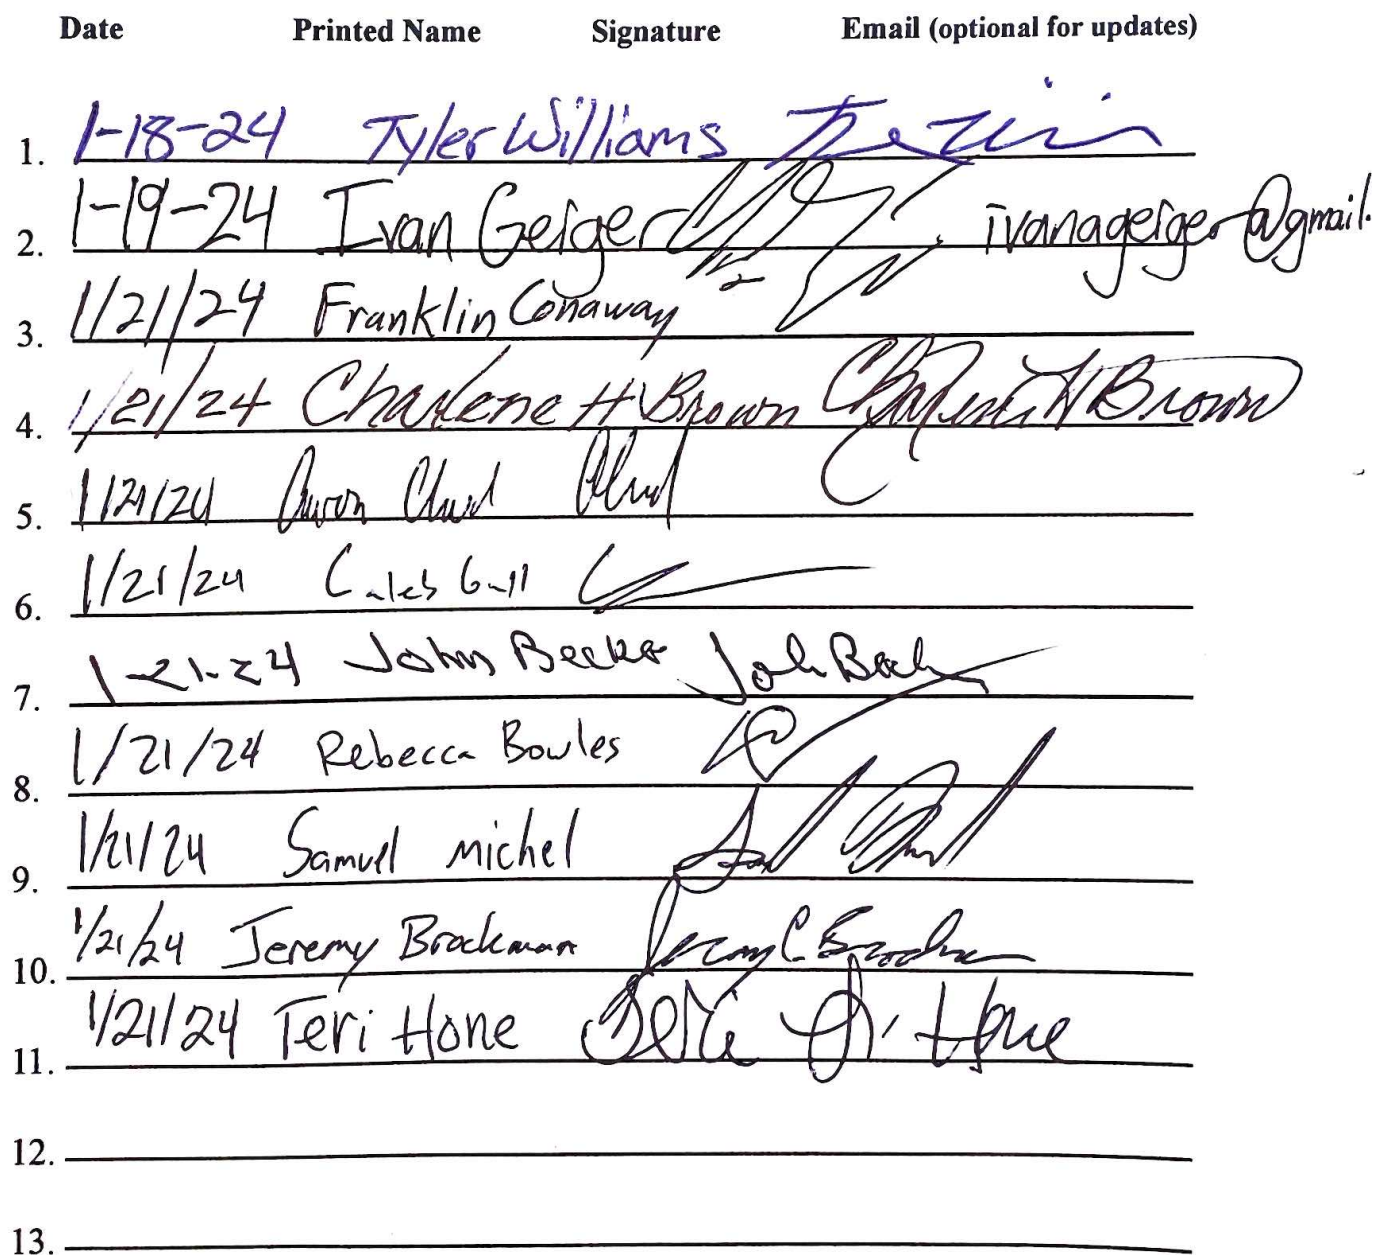 Date Printed Name Signature Email (optional for updates)
1. 1-18-24 Tyler Williams
2. 1-19-24 Ivan Geiger ivanageiger@gmail.
3. 1/21/24 Franklin Conaway
4. 1/21/24 Charlene H Brown Charlene H Brown
5. 1/21/24
6. 1/21/24 Caleb
7. 1-21-24 John Becker
8. 1/21/24 Rebecca Bowles
9. 1/21/24 Samuel Michel
10. 1/21/24 Jeremy Brockman Jeremy C. Brockman
11. 1/21/24 Teri Hone Teri Hone
12.
13.